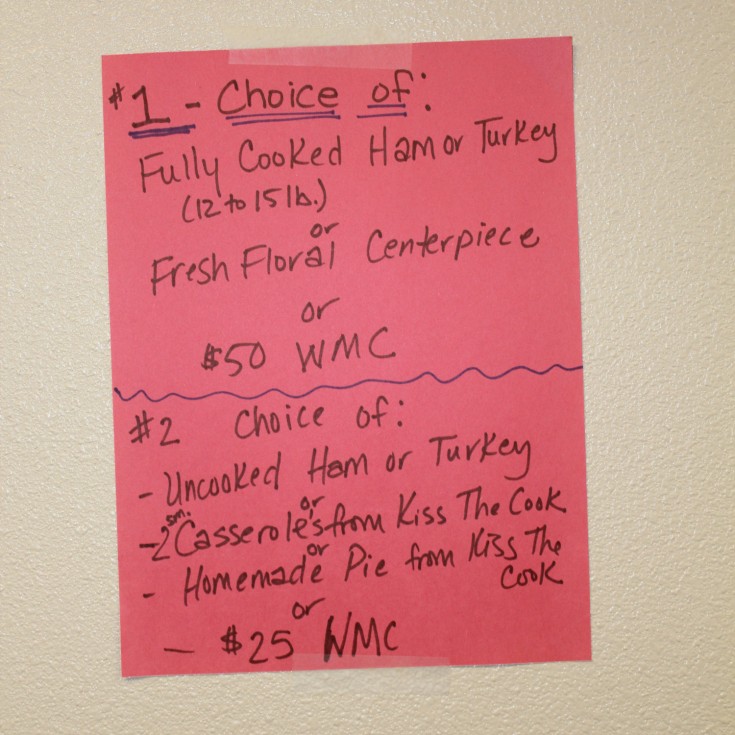 #1 - Choice of:
Fully Cooked Ham or Turkey
(12 to 15 lb.)
or
Fresh Floral Centerpiece
or
$50 WMC
#2 Choice of:
- Uncooked Ham or Turkey
or
- 2 sm. Casserole's from Kiss The Cook
or
- Homemade Pie from Kiss The
Cook
or
- $25 WMC